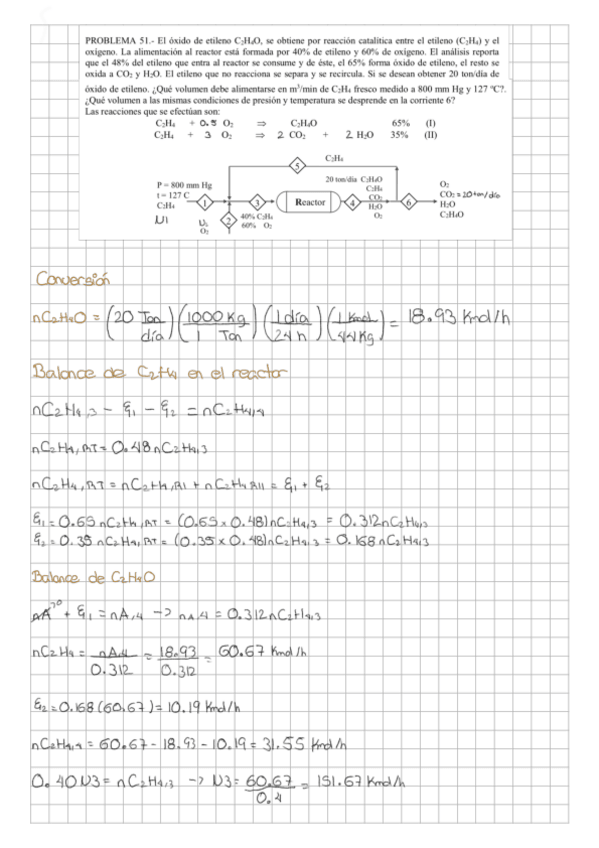 PROBLEMA 51.- El óxido de etileno C₂H₄O, se obtiene por reacción catalítica entre el etileno (C₂H₄) y el
oxígeno. La alimentación al reactor está formada por 40% de etileno y 60% de oxígeno. El análisis reporta
que el 48% del etileno que entra al reactor se consume y de éste, el 65% forma óxido de etileno, el resto se
oxida a CO₂ y H₂O. El etileno que no reacciona se separa y se recircula. Si se desean obtener 20 ton/día de
óxido de etileno. ¿Qué volumen debe alimentarse en m³/min de C₂H₄ fresco medido a 800 mm Hg y 127 ºC?.
¿Qué volumen a las mismas condiciones de presión y temperatura se desprende en la corriente 6?
Las reacciones que se efectúan son:
C₂H₄ + 0.5 O₂ ⇒ C₂H₄O 65% (I)
C₂H₄ + 3 O₂ ⇒ 2 CO₂ + 2 H₂O 35% (II)
C₂H₄
5
P = 800 mm Hg
t = 127 C
C₂H₄
N1
1
N₂
O₂
2
40% C₂H₄
60% O₂
3
Reactor
20 ton/día C₂H₄O
C₂H₄
CO₂
H₂O
O₂
4
6
O₂
CO₂ = 20 ton/día
H₂O
C₂H₄O
Conversión
nC₂H₄O = (20 Ton/día)(1000 Kg/1 Ton)(1 día/24 h)(1 Kmol/44 Kg) = 18.93 Kmol/h
Balance de C₂H₄ en el reactor
nC₂H₄,3 - ξ₁ - ξ₂ = nC₂H₄,4
nC₂H₄,RT = 0.48 nC₂H₄,3
nC₂H₄,RT = nC₂H₄,RI + nC₂H₄ RII = ξ₁ + ξ₂
ξ₁ = 0.65 nC₂H₄,RT = (0.65 x 0.48) nC₂H₄,3 = 0.312 nC₂H₄,3
ξ₂ = 0.35 nC₂H₄,RT = (0.35 x 0.48) nC₂H₄,3 = 0.168 nC₂H₄,3
Balance de C₂H₄O
nA + ξ₁ = nA,4 -> nA,4 = 0.312 nC₂H₄,3
nC₂H₄ = nA,4/0.312 = 18.93/0.312 = 60.67 Kmol/h
ξ₂ = 0.168 (60.67) = 10.19 Kmol/h
nC₂H₄,4 = 60.67 - 18.93 - 10.19 = 31.55 Kmol/h
0.40 N3 = nC₂H₄,3 -> N3 = 60.67/0.4 = 151.67 Kmol/h